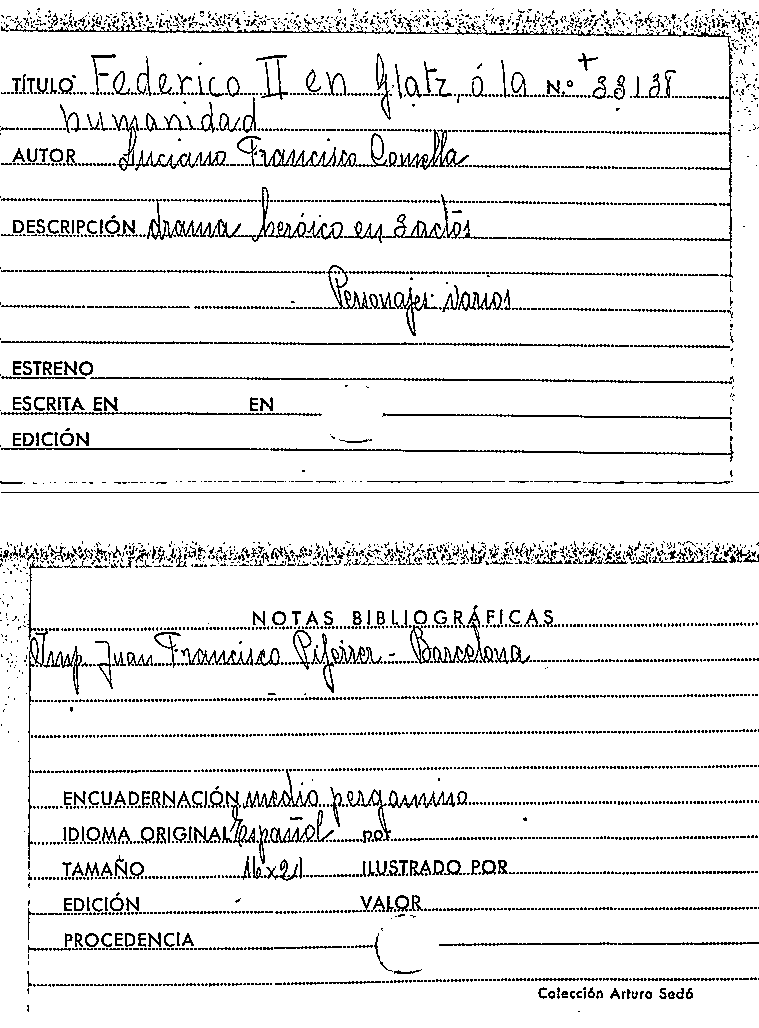 TÍTULO Federico II en Glatz, ó la N.º + 33138
humanidad
AUTOR Luciano Francisco Comella
DESCRIPCIÓN drama heróico en 3 actos
Personajes: varios
ESTRENO
ESCRITA EN EN
EDICIÓN
NOTAS BIBLIOGRÁFICAS
Imp Juan Francisco Piferrer - Barcelona
ENCUADERNACIÓN medio pergamino
IDIOMA ORIGINAL Español por
TAMAÑO 16x21 ILUSTRADO POR
EDICIÓN VALOR
PROCEDENCIA
Colección Arturo Sedó